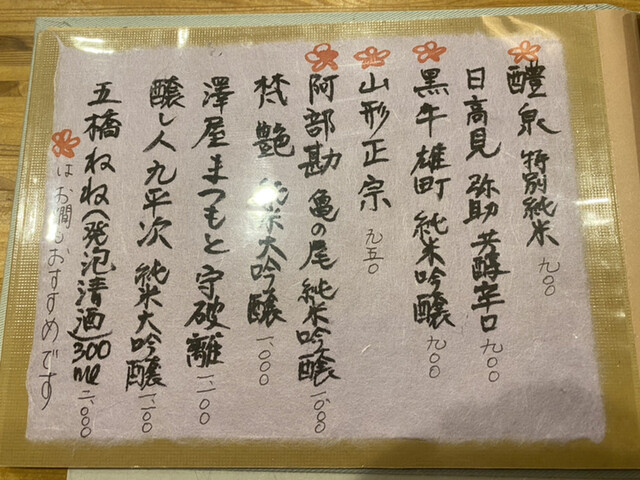 醴泉 特別純米 九〇〇
日高見 弥助 芳醇辛口 九〇〇
黒牛 雄町 純米吟醸 九〇〇
山形正宗 九五〇
阿部勘 亀の尾 純米吟醸 一、〇〇〇
梵 艶 純米大吟醸 一、〇〇〇
澤屋まつもと 守破離 一、一〇〇
醸し人九平次 純米大吟醸 一、二〇〇
五橋 ねね(発泡清酒)300ml 二、〇〇〇
はお燗もおすすめです